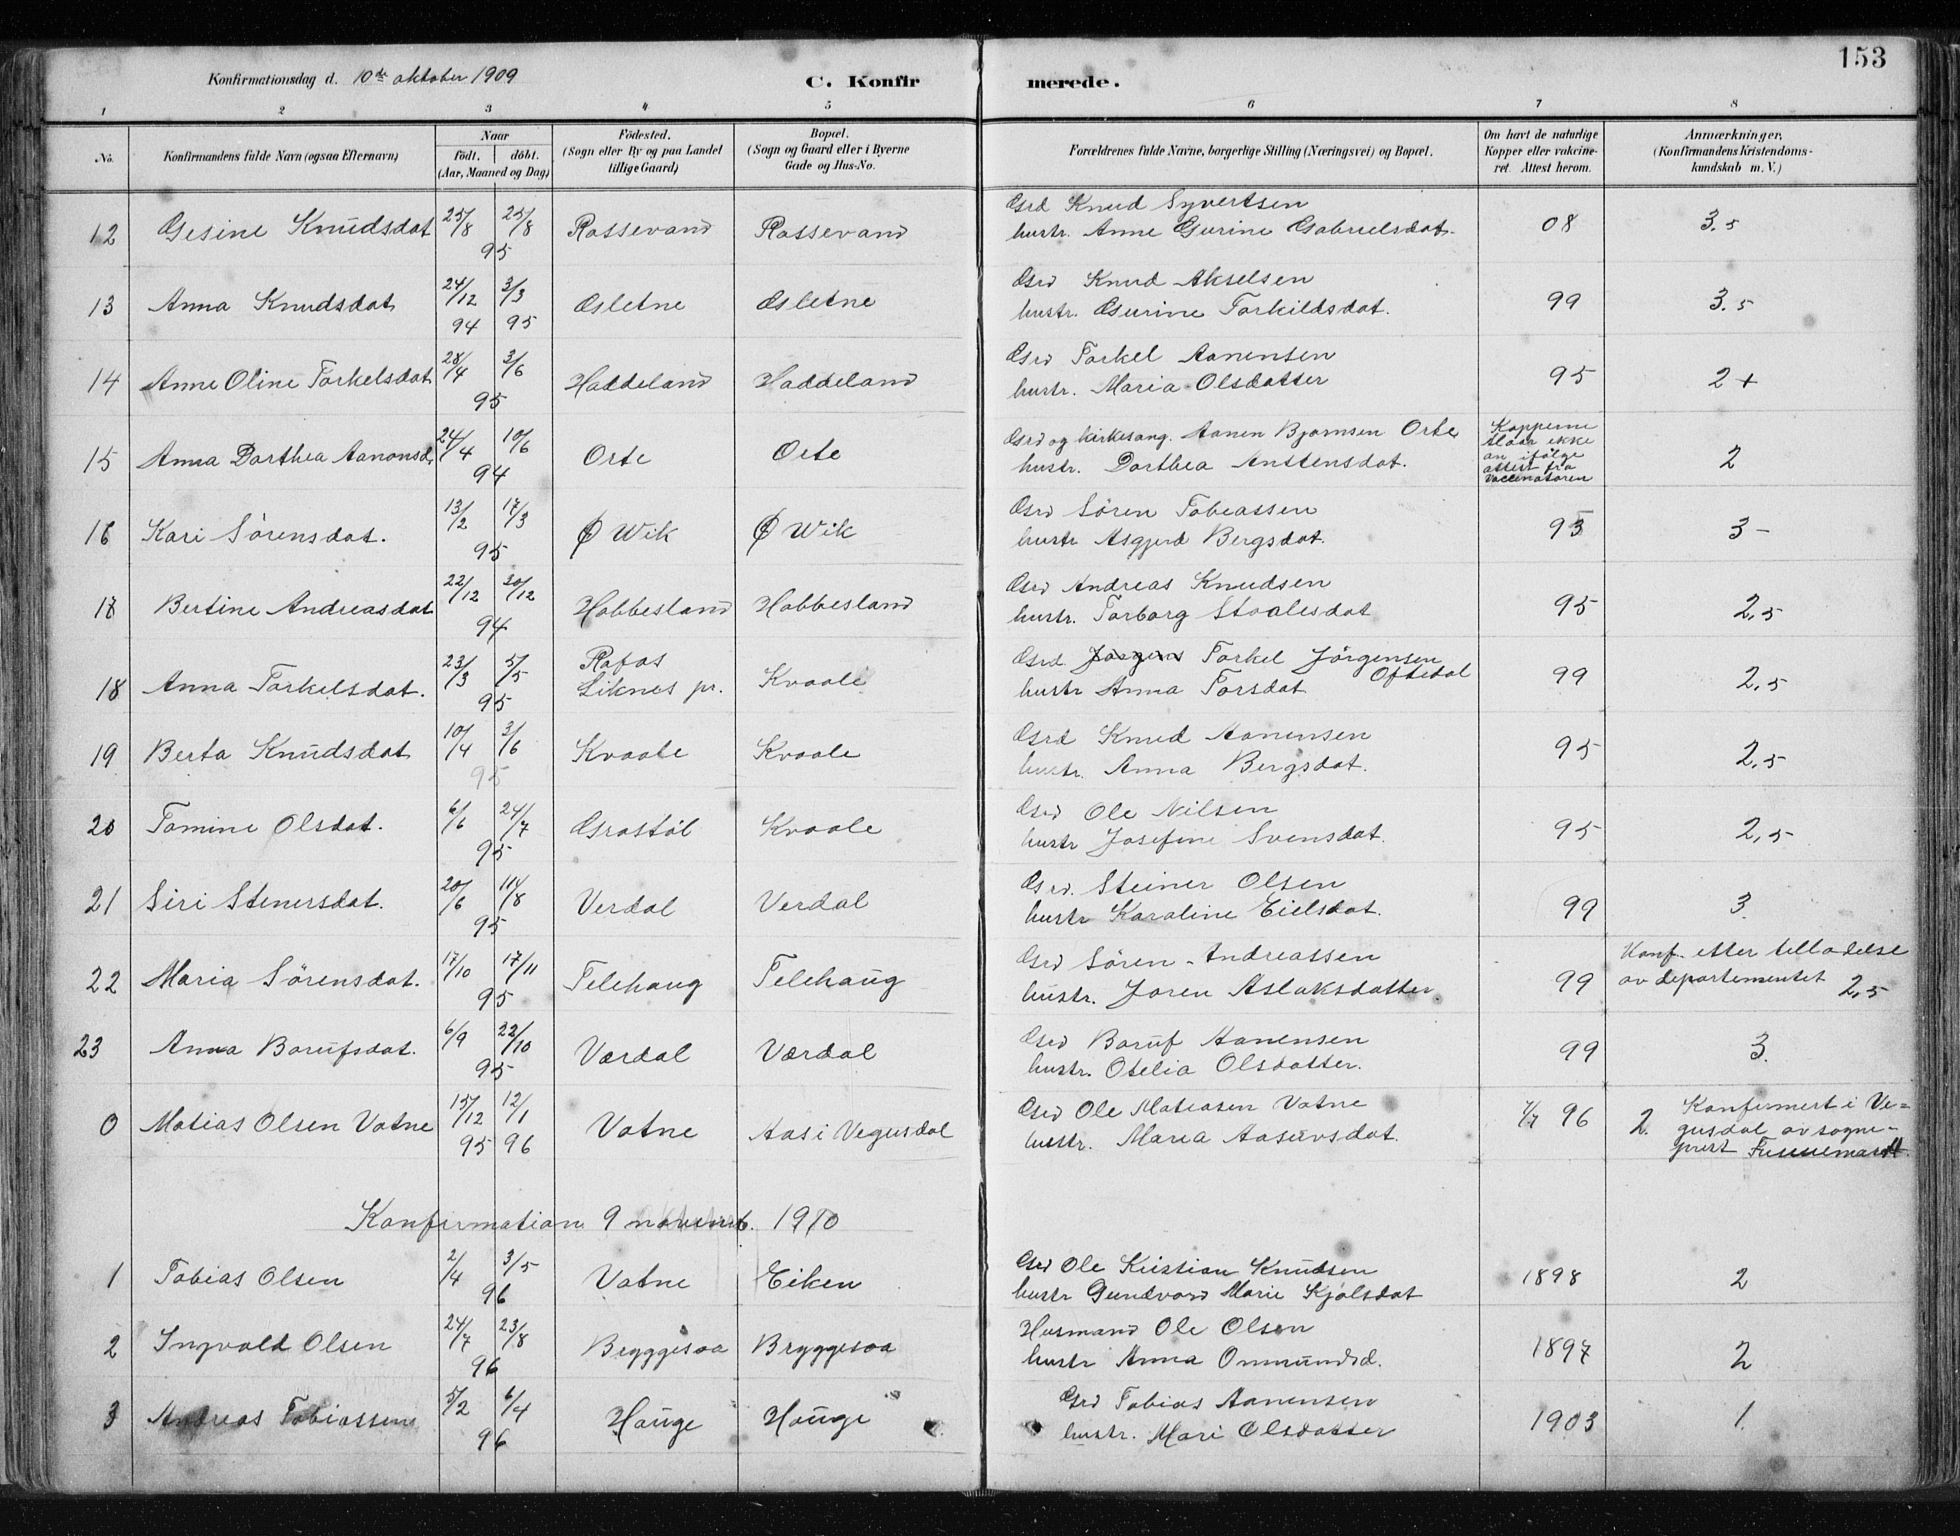 153
Konfirmationsdag d. 10de oktober 1909 C. Konfirmerede.
1 2 3 4 5 6 7 8
No. Konfirmandens fulde Navn (ogsaa Efternavn) Naar födt. döbt. (Aar, Maaned og Dag) Födested. (Sogn eller By og paa Landet tillige Gaard) Bopæl. (Sogn og Gaard eller i Byerne Gade og Hus-No. Forældrenes fulde Navne, borgerlige Stilling (Næringsvei) og Bopæl. Om havt de naturlige Kopper eller vakcineret. Attest herom. Anmærkninger. (Konfirmandens Kristendomskundskab m. V.)
12 Gesine Knudsdat 25/8 25/8 95 Rossevand Rossevand Grd Knud Syvertsen
hustr. Anne Gurine Gabrielsdat. 08 3.5
13 Anna Knudsdat 24/12 94 3/3 95 Gsletne Gsletne Grd Knud Akselsen
hustr. Gurine Torkildsdat. 99 3.5
14 Anne Oline Torkelsdat 28/4 3/6 95 Haddeland Haddeland Grd Torkel Aanensen
hustr. Maria Olsdatter 95 2+
15 Anna Dorthea Aanonsd. 24/4 10/6 94 Orte Orte Grd og kirkesang. Aanen Bjørnsen Orte
hustr. Dorthea Anstensdat. Kopperne slaar ikke an ifølge attest fra Vaccinatøren 2
16 Kari Sörensdat. 13/2 17/3 95 Ø Wik Ø Wik Grd Sören Tobiassen
hustr Asgjerd Bergsdat. 95 3-
17 Bertine Andreasdat 22/12 30/12 94 Hobbesland Hobbesland Grd Andreas Knudsen
hustr. Torborg Staalesdat 95 2,5
18 Anna Torkelsdat. 23/3 5/5 95 Rafos Liknes pr. Kvaale Grd. Jørgens Torkel Jörgensen Oftedal
hustr Anna Torsdat 99 2,5
19 Berta Knudsdat 10/4 3/6 95 Kvaale Kvaale Grd Knud Aanensen
hustr. Anna Bergsdat. 95 2,5
20 Tomine Olsdat. 6/6 24/7 95 Grostöl Kvaale Grd Ole Nilsen
hustr Josefine Svensdat. 95 2,5
21 Siri Stenersdat. 20/6 11/8 95 Verdal Verdal Grd. Steiner Olsen
hustr Karoline Eielsdat. 99 3.
22 Maria Sörensdat. 17/10 17/11 95 Telehaug Telehaug Grd Sören Andreassen
hustr. Joren Aslaksdatter. 99 Konf. efter tilladelse av departementet 2,5
23 Anna Barufsdat. 6/9 22/10 95 Værdal Værdal Grd Baruf Aanensen
hustr. Otelia Olsdatter. 99 3.
0 Matias Olsen Vatne 15/12 95 12/1 96 Vatne Aas i Vegusdal Grd Ole Matiasen Vatne
hustr. Maria Aasuvsdat. 7/7 96 2. Konfirmert i Vegusdal av sogneprest
Konfirmation 9 novemb. 1910
1 Tobias Olsen 2/4 3/5 96 Vatne Eiken Grd Ole Kristian Knudsen
hustr Gundvor Marie Kjølsdat 1898 2
2 Ingvald Olsen 24/7 23/8 96 Bryggesaa Bryggesaa Husmand Ole Olsen
hustr Anna Onmundsd. 1897 2
3 Andreas Tobiassen 5/2 6/4 96 Hauge Hauge Grd Tobias Aanensen
hustr. Mari Olsdatter 1903 1.